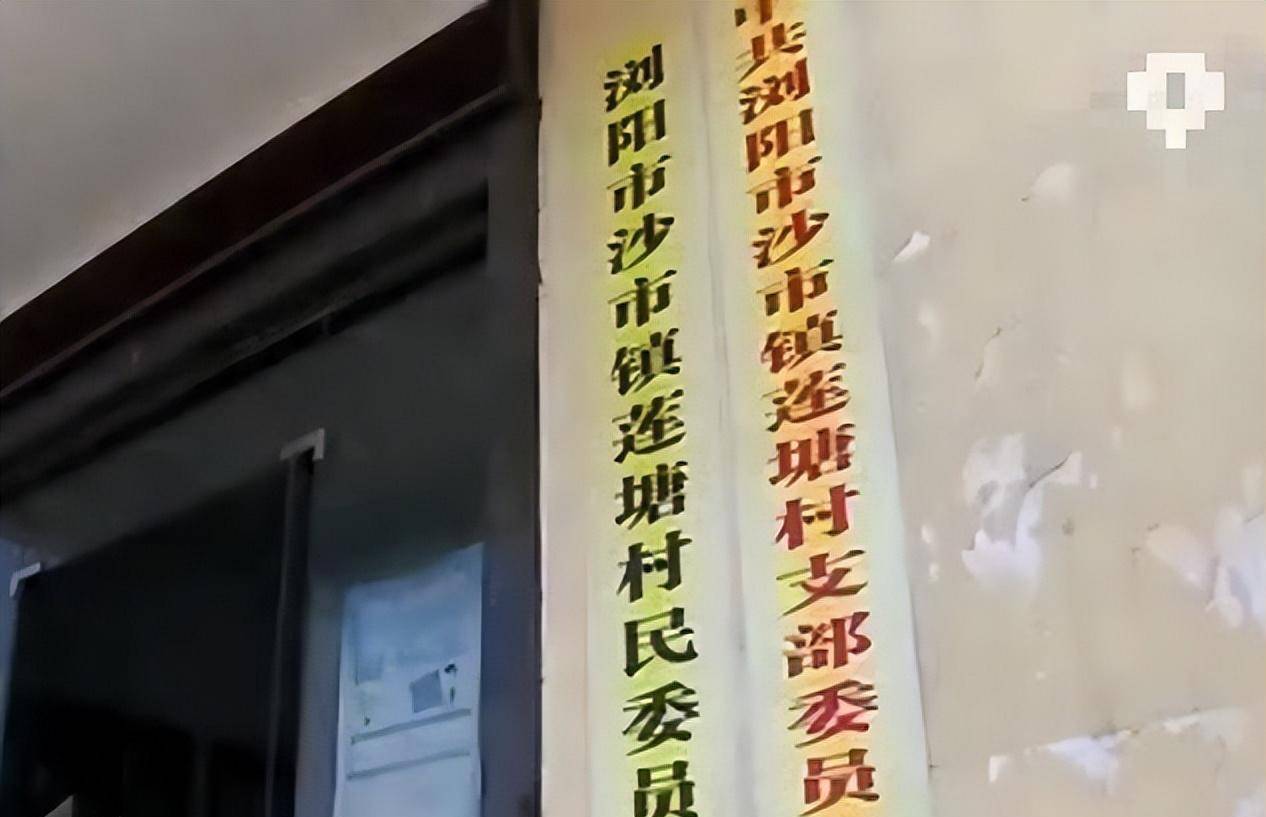 浏阳市沙市镇莲塘村民委员
中共浏阳市沙市镇莲塘村支部委员